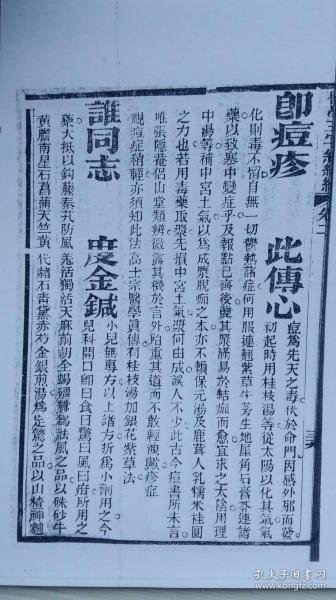 即痘疹 此傳心
痘爲先天之毒伏於命門因感外邪而發
初起時用桂枝湯等從太陽以化其氣氣
化則毒不留自無一切鬱熱諸症何用服連翹紫草牛蒡生地犀角石膏芩連諸
藥以致寒中變症乎及報點已齊後冀其漿滿易於結痂而愈宜求之太陰用理
中湯等補中宮土氣以爲成漿脫痂之本亦不賴保元湯及鹿茸人乳糯米桂圓
之力也若用毒藥取漿先損中宮土氣漿何由成誤人不少此古今痘書所未言
唯張隱菴侶山堂類辨微露其機於言外殆重其道而不敢輕洩歟疹症
視痘症稍輕亦須知此法高士宗醫學眞傳有桂枝湯加銀花紫草法
誰同志 度金鍼
小兒無專方以上諸方折爲小劑用之今
兒科開口即曰食曰驚曰風曰疳所用之
藥大抵以鈎藤秦艽防風羌活獨活天麻前胡全蝎殭蠶爲祛風之品以硃砂牛
黃膽南星石菖蒲天竺黃代赭石青黛赤芍金銀煎湯爲定驚之品以山楂神麯
孔夫子旧书网